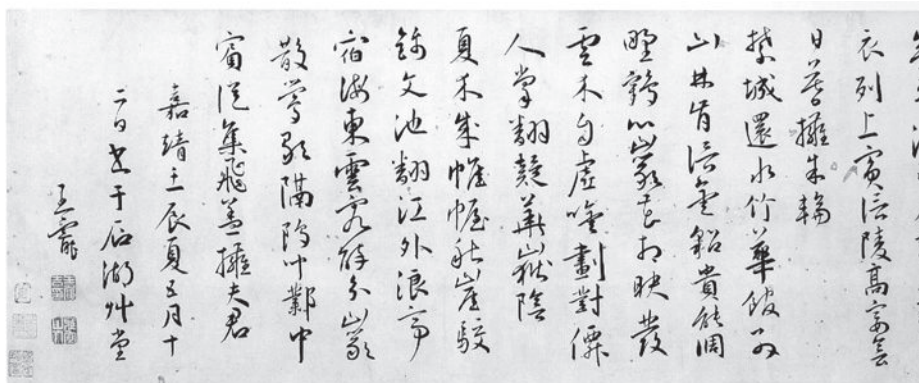 衣列上賓信陵高宴會
日暮擁朱輪
禁城還水竹華館
山林肯信金貂貴能調
野鶴心巖花相映發
雲木自虛吟劃對僊
人掌翻疑華嶽陰
夏木成帷幄秋崖駮
錦文池翻江外浪亭
宿海東雲客醉分巖
散鶯歌隔隖聞鄴中
賓從集飛蓋擁夫君
嘉靖壬辰夏五月十
二日書于石湖草堂
王寵